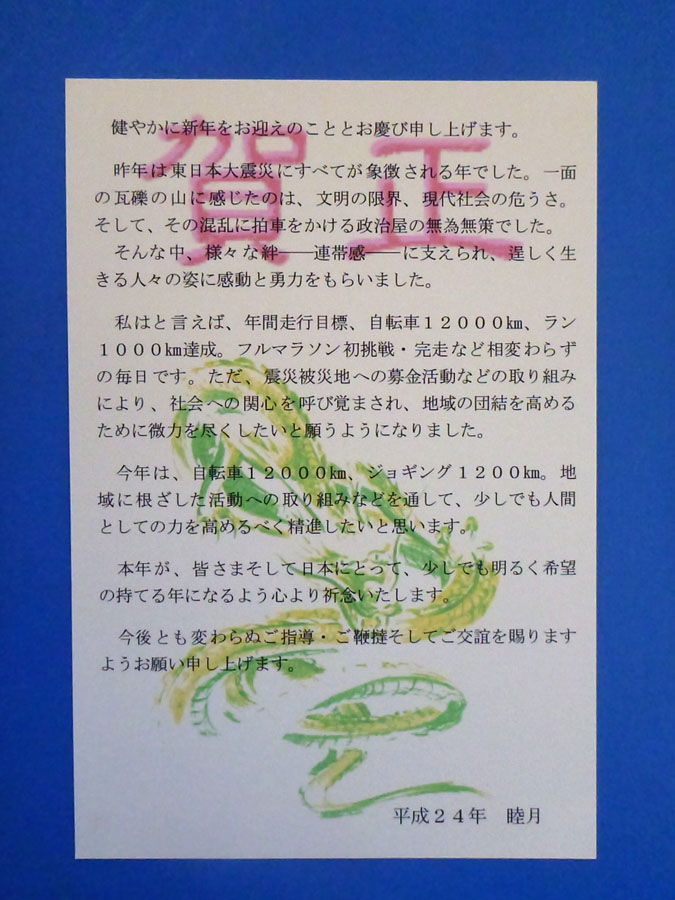 賀正
健やかに新年をお迎えのこととお慶び申し上げます。
昨年は東日本大震災にすべてが象徴される年でした。一面
の瓦礫の山に感じたのは、文明の限界、現代社会の危うさ。
そして、その混乱に拍車をかける政治屋の無為無策でした。
そんな中、様々な絆――連帯感――に支えられ、逞しく生
きる人々の姿に感動と勇力をもらいました。
私はと言えば、年間走行目標、自転車１２０００㎞、ラン
１０００㎞達成。フルマラソン初挑戦・完走など相変わらず
の毎日です。ただ、震災被災地への募金活動などの取り組み
により、社会への関心を呼び覚まされ、地域の団結を高める
ために微力を尽くしたいと願うようになりました。
今年は、自転車１２０００㎞、ジョギング１２００㎞。地
域に根ざした活動への取り組みなどを通して、少しでも人間
としての力を高めるべく精進したいと思います。
本年が、皆さまそして日本にとって、少しでも明るく希望
の持てる年になるよう心より祈念いたします。
今後とも変わらぬご指導・ご鞭撻そしてご交誼を賜ります
ようお願い申し上げます。
平成２４年　睦月